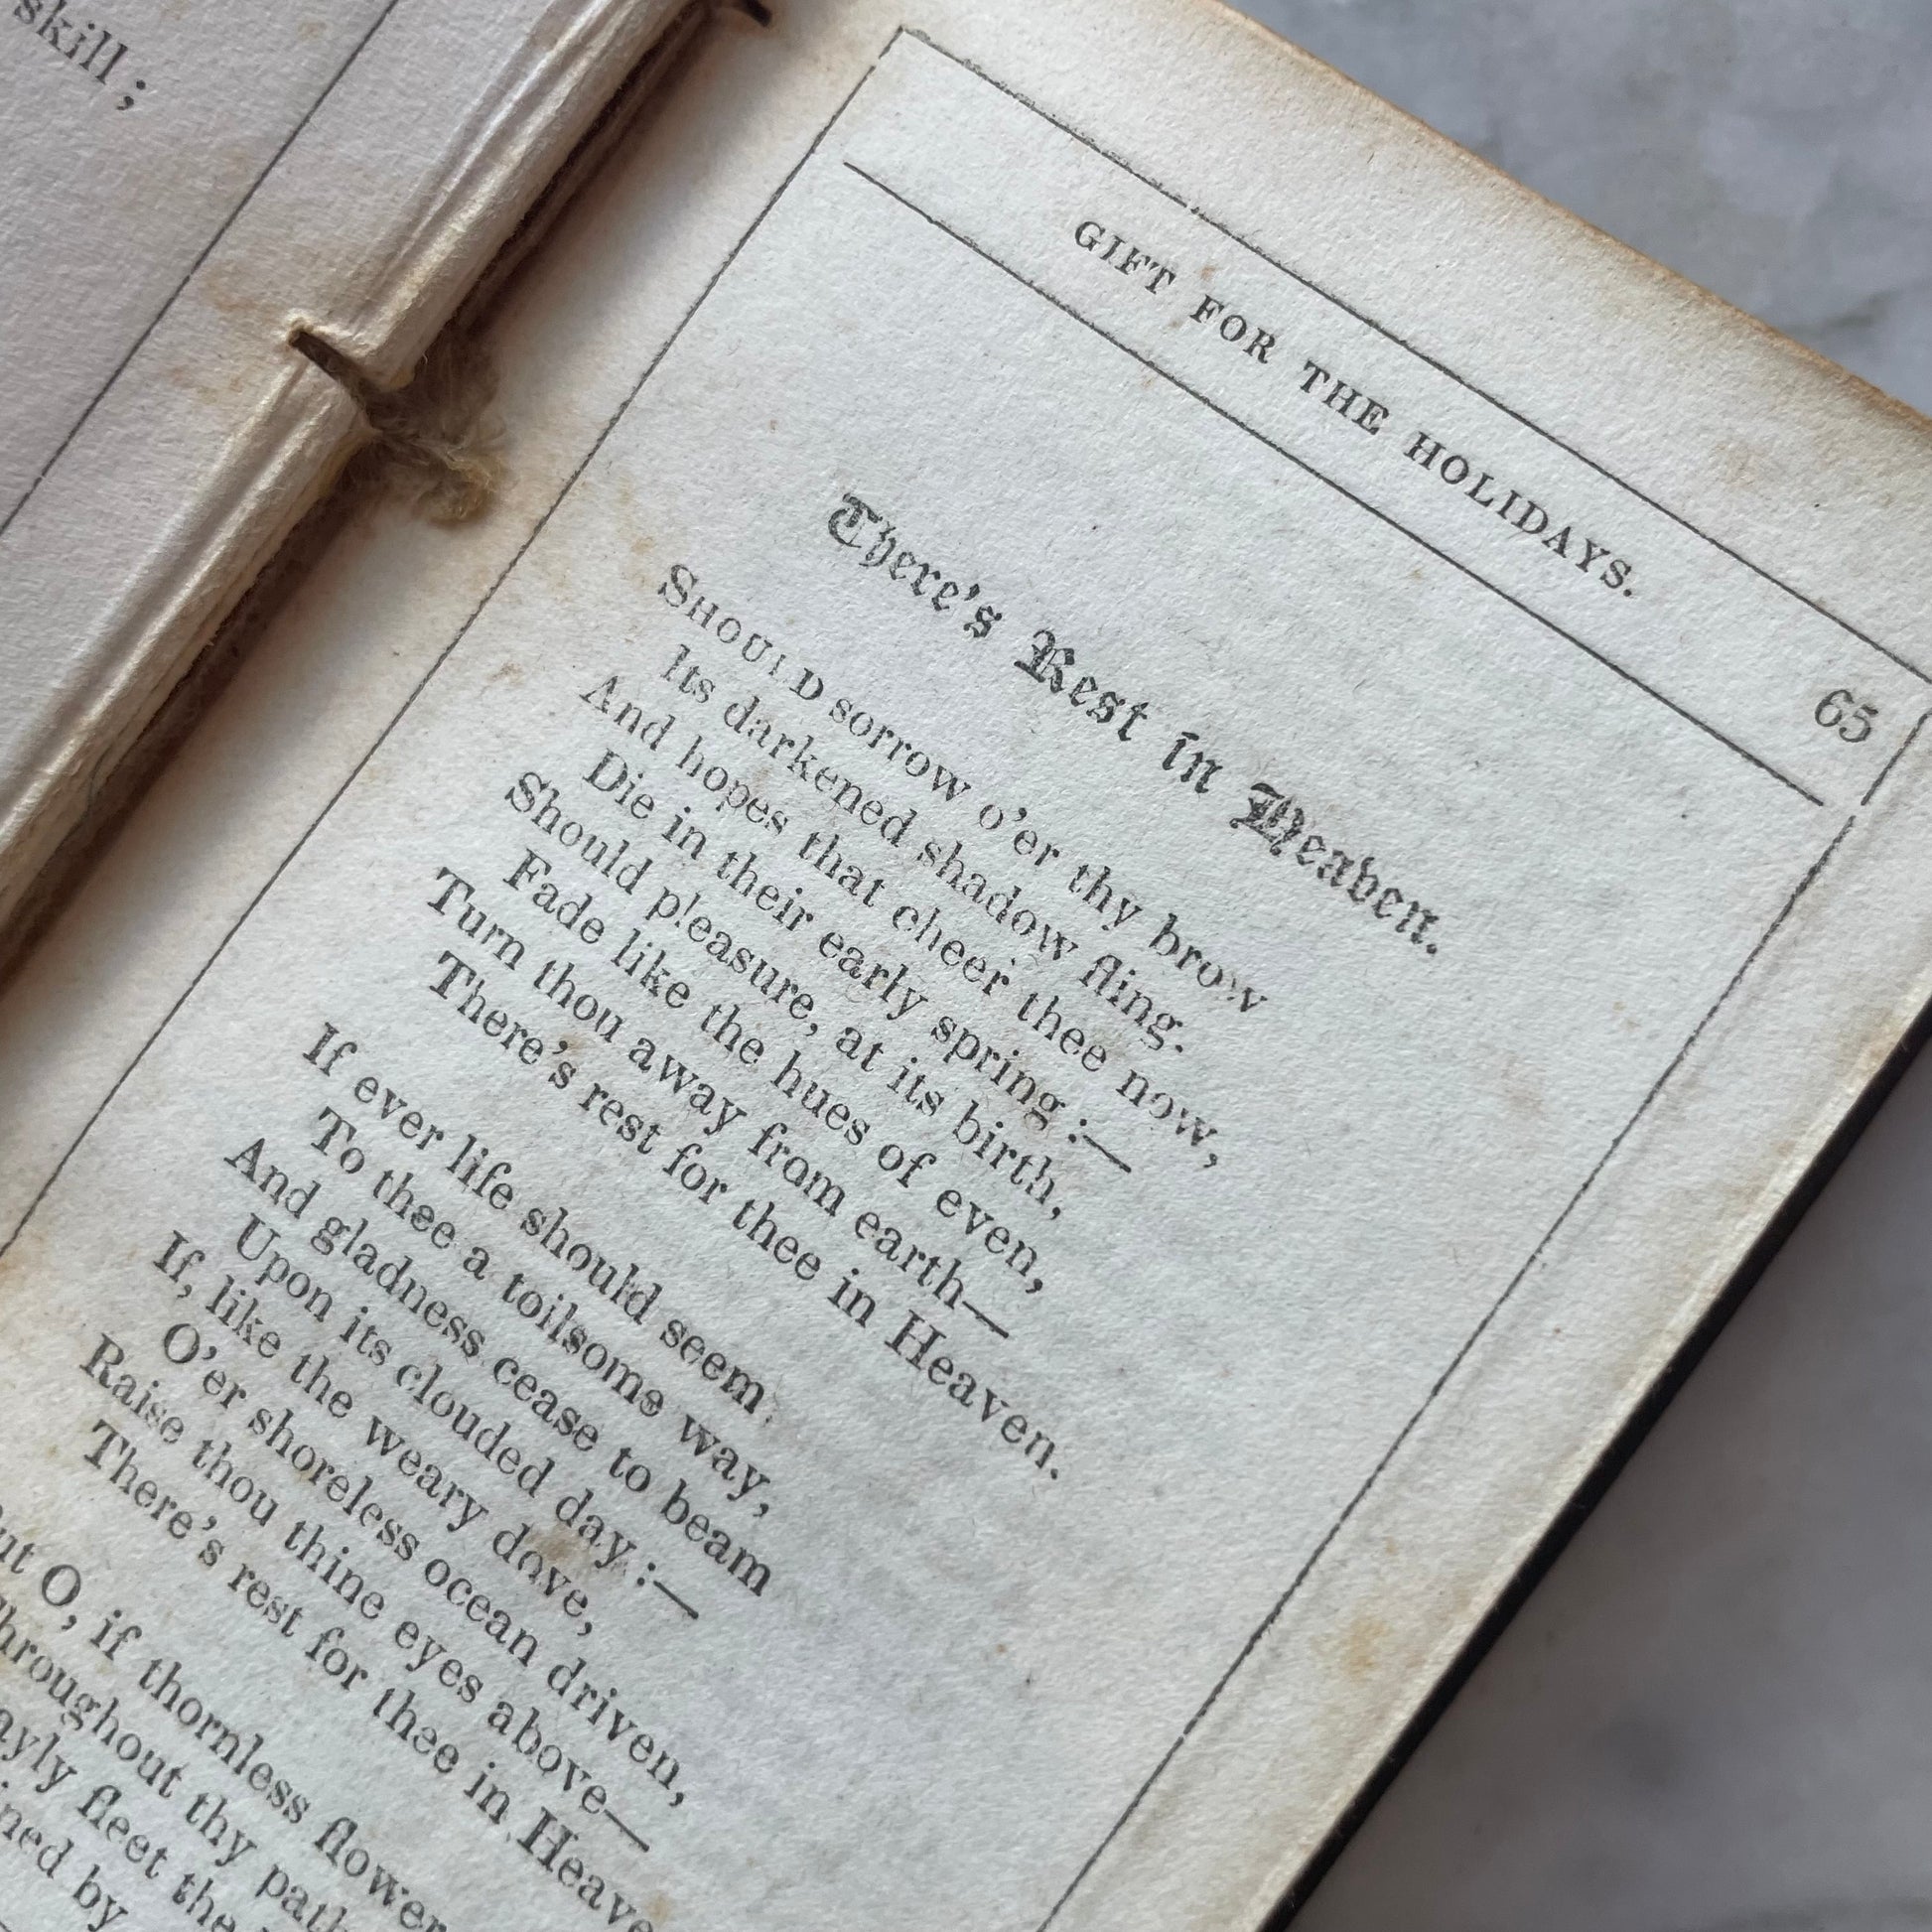 skill;
GIFT FOR THE HOLIDAYS. 65
There's Rest in Heaven.
SHOULD sorrow o'er thy brow
Its darkened shadow fling.
And hopes that cheer thee now,
Die in their early spring:—
Should pleasure, at its birth,
Fade like the hues of even,
Turn thou away from earth—
There's rest for thee in Heaven.
If ever life should seem
To thee a toilsome way,
And gladness cease to beam
Upon its clouded day:—
If, like the weary dove,
O'er shoreless ocean driven,
Raise thou thine eyes above—
There's rest for thee in Heave
ut O, if thornless flower
hroughout thy path
ayly fleet the
ned by